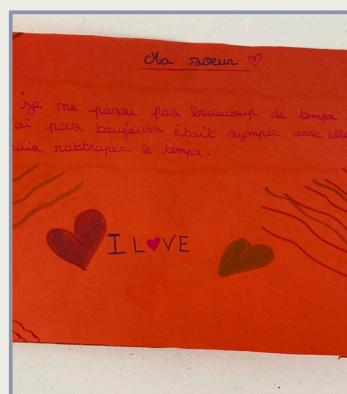 Ma soeur
je ne passe pas beaucoup de temps
ai pas toujours était sympa avec elle
rais rattraper le temps.
I LOVE